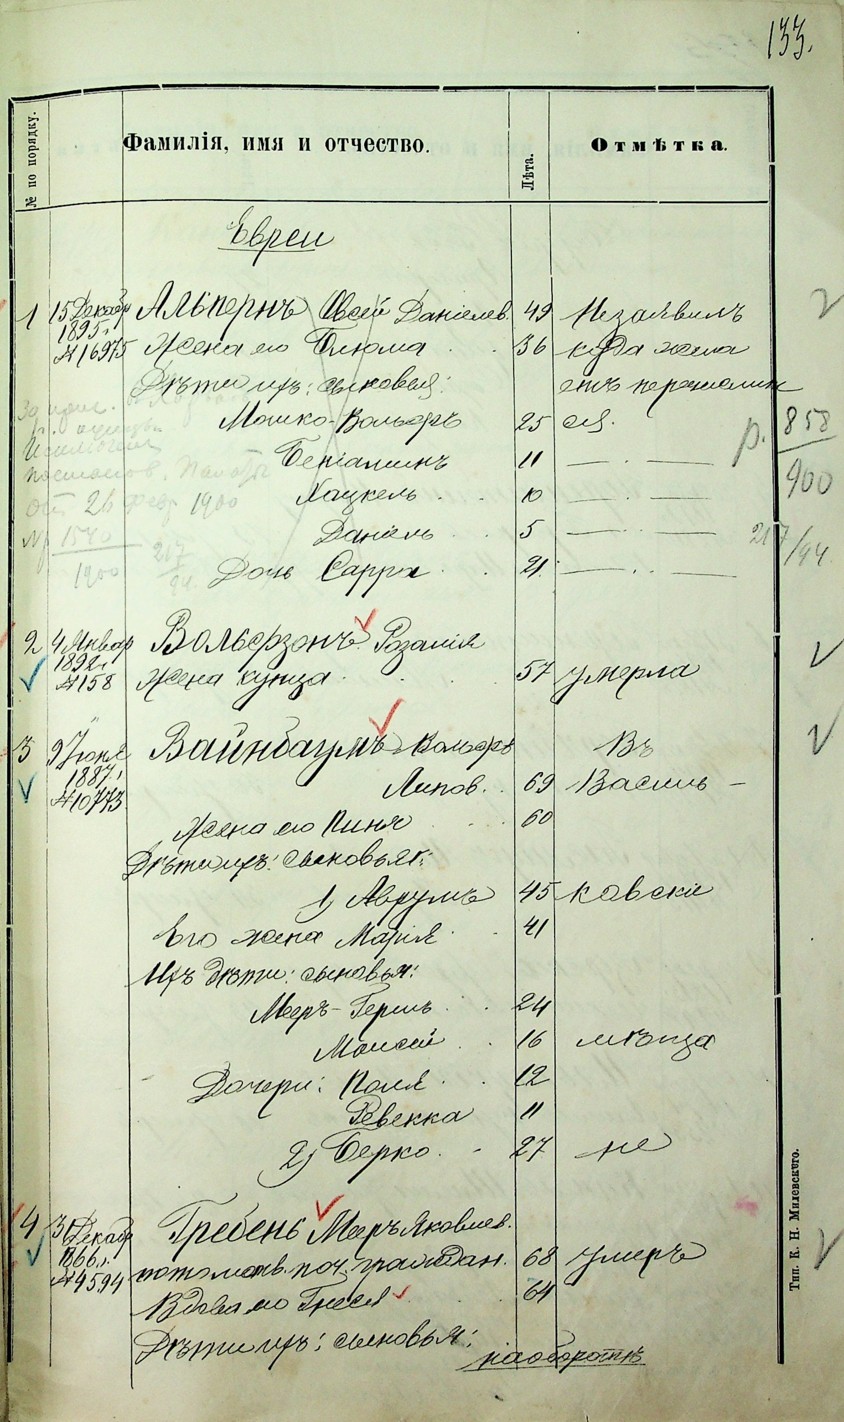 133.
№ по порядку. Фамилія, имя и отчество. Лѣта. Отмѣтка.
Евреи
1 15 Декабр Альпернъ Овсей Даніелев 49 Незаявилъ
1895 г.
№ 16975 Жена его Блюма 36 куда жела
Дѣти ихъ: сыновья: етъ перечислит
Мошко-Вольфъ 25 ся.
р. 858
900
Беніаминъ 11 — . —
Хацкель 10 — . —
Даніель 5 — . —
217/94
Дочь Сарра 21 — . . —
от 26 февр 1900
№ 1540
1900
217
94
2 4 Январ Вольфзонъ Розалія
1892 г
№ 158 Жена купца 57 умерла
3 9 Іюня Вайнбаумъ Вольфъ Въ
1887 г.
№ 10773 Липов. 69 Василь –
Жена его Пиня 60
Дѣти ихъ: сыновья:
1) Аврумъ 45 ковски
Его жена Марія 41
Ихъ дѣти: сыновья:
Мееръ-Герш 24
Моисей 16 мѣща
Дочери: Поля 12
Ревекка 11
2) Берко 27 не
4 31 Декабр Гребень Мееръ Яковлев.
1866 г.
№ 4594 потомств. поч. граждан. 68 умеръ
Вдова его Гнеся 64
Дѣти ихъ: сыновья:
на оборотѣ
Тип. К. Н. Милевскаго.